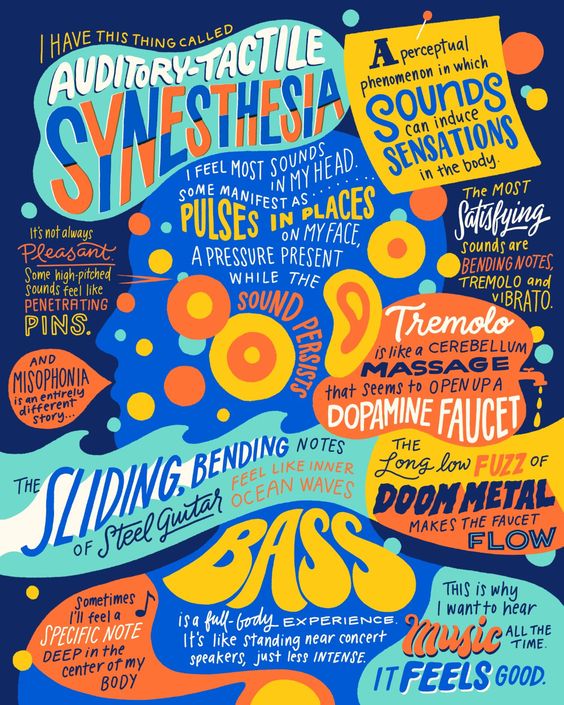 I HAVE THIS THING CALLED
AUDITORY-TACTILE
SYNESTHESIA
A perceptual
phenomenon in which
SOUNDS
can induce
SENSATIONS
in the body.
I FEEL MOST SOUNDS
IN MY HEAD.
SOME MANIFEST AS.........
PULSES IN PLACES
ON MY FACE,
A PRESSURE PRESENT
WHILE THE
SOUND PERSISTS
The MOST
Satisfying
sounds are
BENDING NOTES,
TREMOLO and
VIBRATO.
It's not always
Pleasant.
Some high-pitched
sounds feel like
PENETRATING
PINS.
AND
MISOPHONIA
is an entirely
different
story...
Tremolo
is like a CEREBELLUM
MASSAGE
that seems to OPEN UP A
DOPAMINE FAUCET
THE
SLIDING, BENDING NOTES
OF Steel Guitar
FEEL LIKE INNER
OCEAN WAVES
THE
Long low FUZZ OF
DOOM METAL
MAKES THE FAUCET
FLOW
BASS
is a full-body EXPERIENCE.
It's like standing near concert
speakers, just less INTENSE.
Sometimes
I'll feel a
SPECIFIC NOTE
DEEP in the
center of my
BODY
THIS IS why
I want to hear
Music ALL THE
TIME.
IT FEELS GOOD.